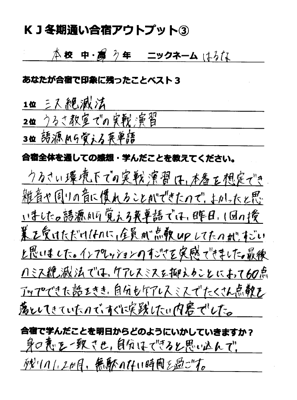 KJ冬期通い合宿アウトプット③
本校 中・高 3年 ニックネーム はるな
あなたが合宿で印象に残ったことベスト3
1位 ミス絶滅法
2位 うるさ教室での実戦演習
3位 語源から覚える英単語
合宿全体を通しての感想・学んだことを教えてください。
うるさい環境下での実戦演習は、本番を想定でき
雑音や周りの音に慣れることができたので、よかったと思
いました。語源から覚える英単語では、昨日、1回の授
業を受けただけなのに、全員が点数UPしてたのがすごい
と思いました。インプレッションのすごさを実感できました。最後
のミス絶滅法では、ケアレスミスを抑えることによって60点
アップできた話をきき、自分もケアレスミスでたくさん点数を
落としてきていたのですぐに実践したい内容でした。
合宿で学んだことを明日からどのようにいかしていきますか？
身口意を一致させ、自分はできると思い込んで、
残りの1、2か月、無駄のない時間を過ごす。